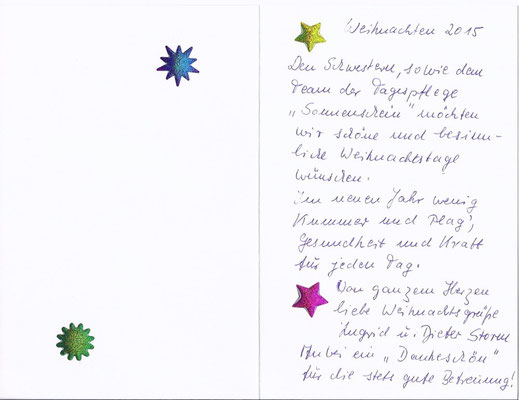 Weihnachten 2015
Den Schwestern, sowie dem
Team der Tagespflege
„Sonnenschein" möchten
wir schöne und besinn-
liche Weihnachtstage
wünschen.
Im neuen Jahr wenig
Kummer und Plag',
Gesundheit und Kraft
für jeden Tag.
Von ganzem Herzen
liebe Weihnachtsgrüße
Ingrid u. Dieter Storm
Anbei ein „Dankeschön"
für die stets gute Betreuung!